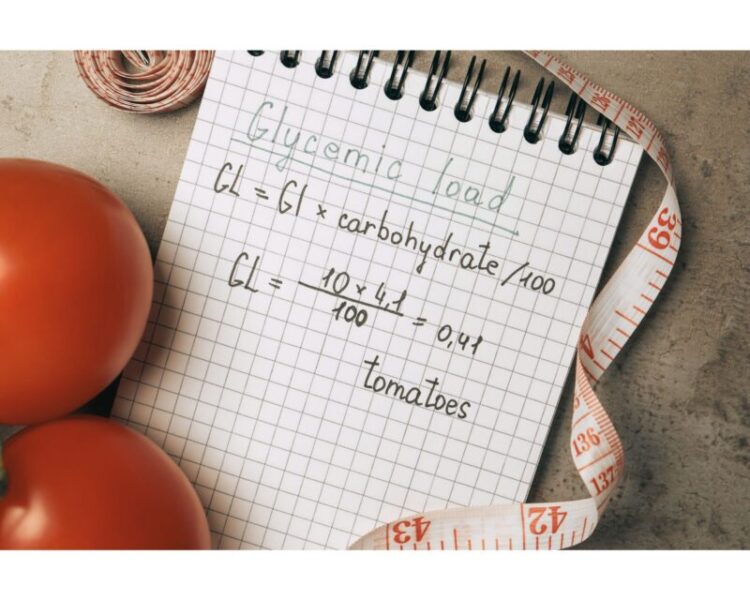 Glycemic load
GL = GI × carbohydrate /100
GL = 10 × 4,1
100
= 0,41
tomatoes
39
136
137
42
43